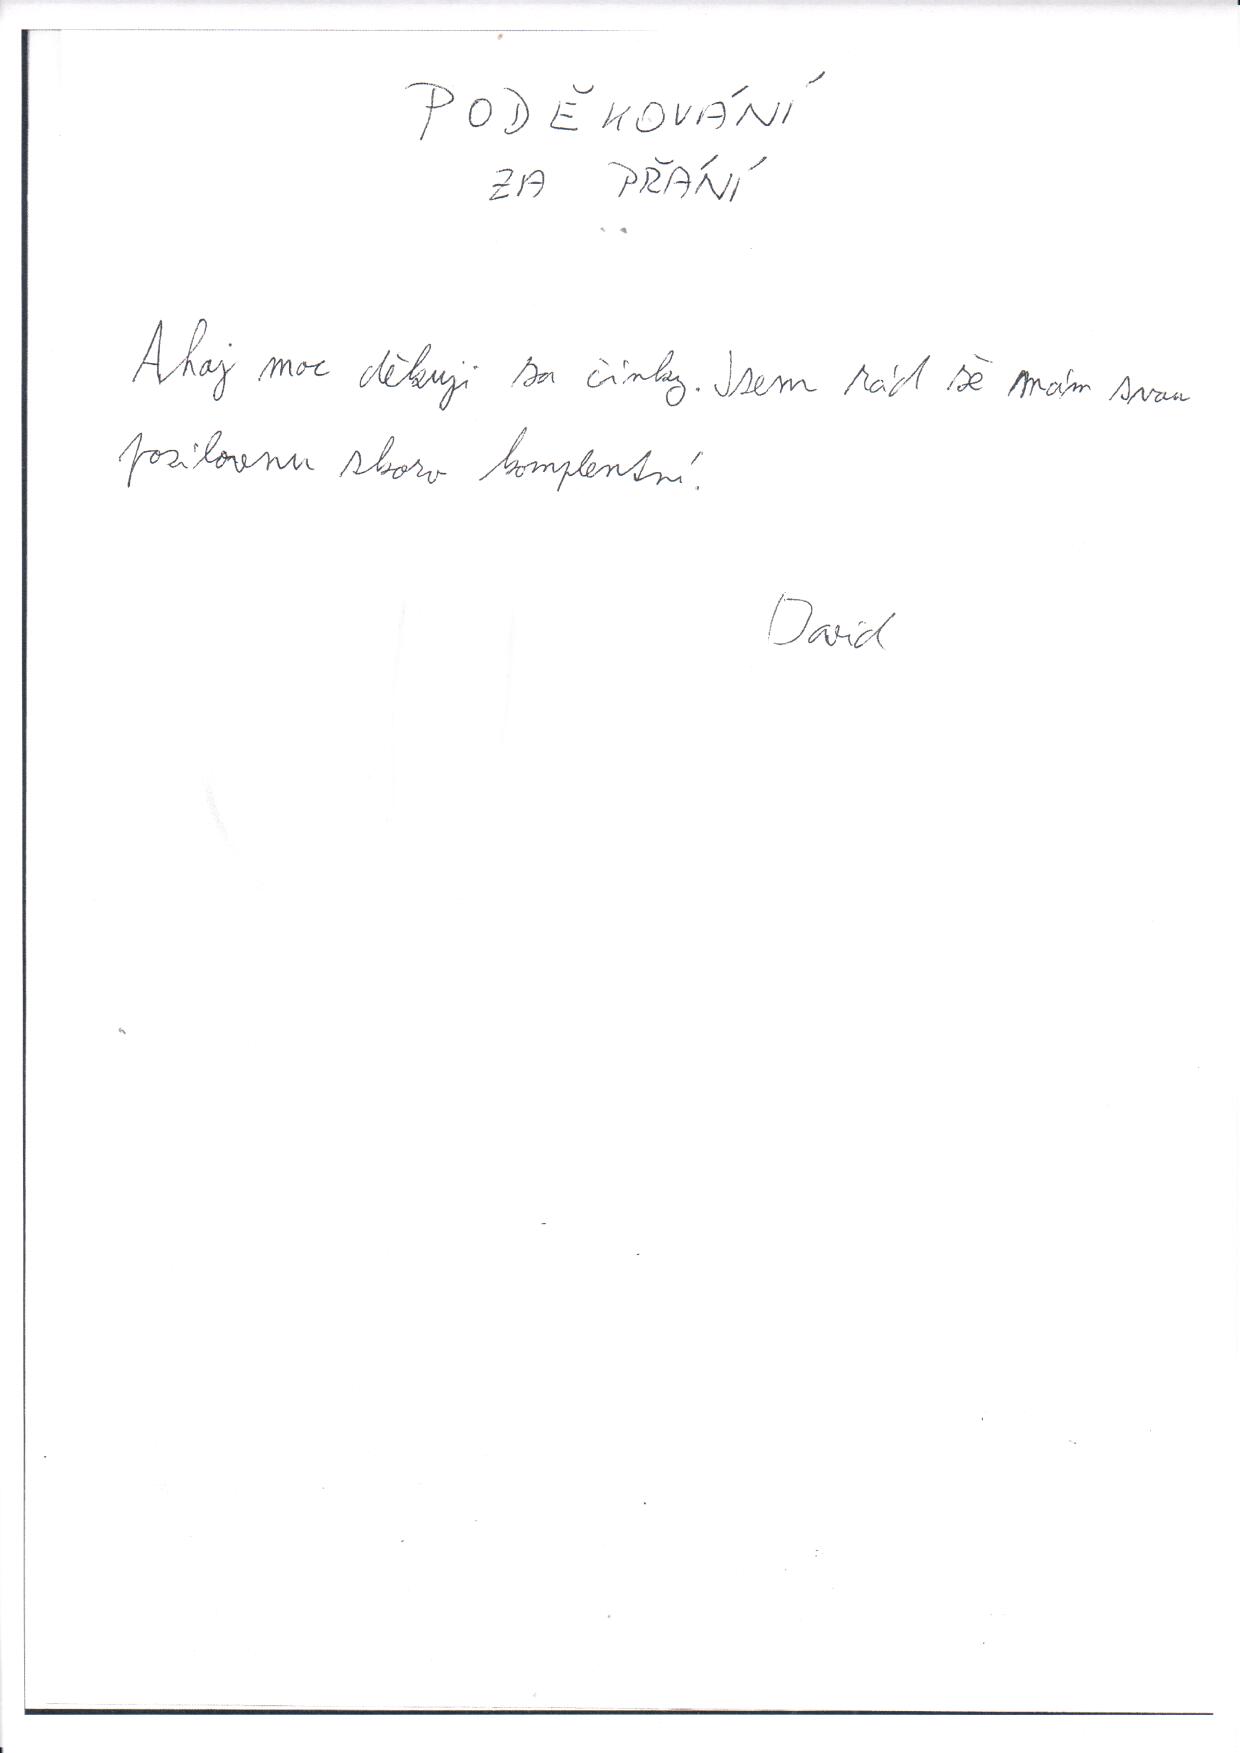 PODĚKOVÁNÍ
ZA PŘÁNÍ
Ahoj moc děkuji za činky. Jsem rád že mám svou
posilovnu skoro komplentní!
David